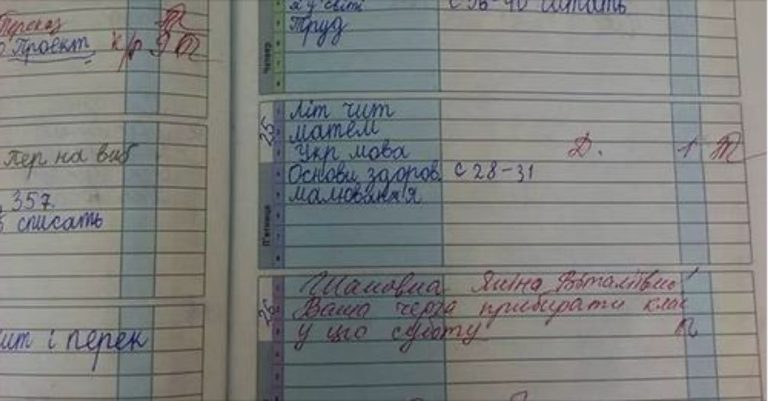 Переказ
Проект к/р 9
Пер на виб
357.
списать
і перек
я у світі
с 36-40 читать
Труд
Четвер
25
Літ чит
матем
Укр мова Д. 1
Основи здоров. с 28-31
малювання
П'ятниця
26
Шановна Яніна Віталіївно!
Ваша черга прибирати клас
у цю суботу